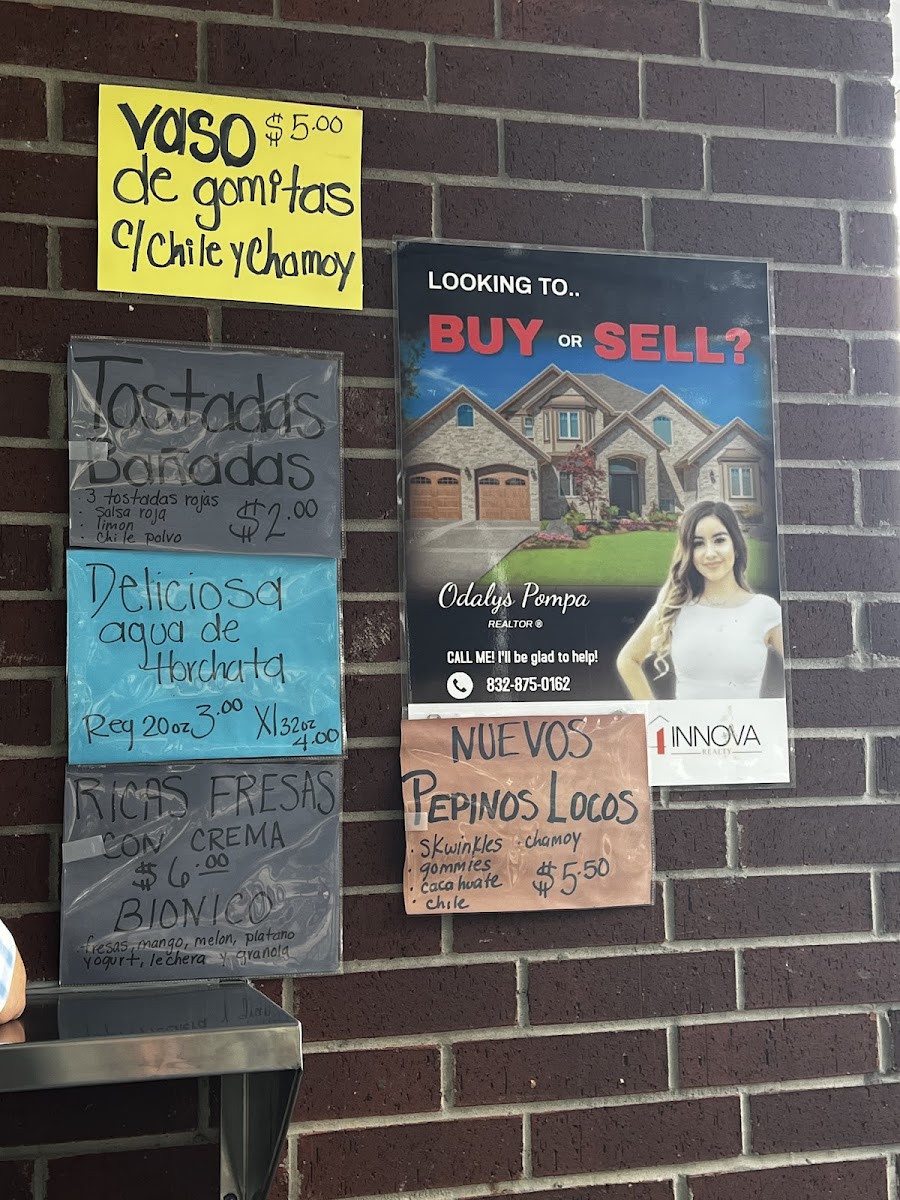 Vaso $5.00
de gomitas
c/Chile y Chamoy
Tostadas
Bañadas
· 3 tostadas rojas
· Salsa roja
· limon
· Chile polvo
$2.00
Deliciosa
agua de
Horchata
Reg 20oz 3.00 Xl 32oz 4.00
RICAS FRESAS
CON CREMA
$6.00
BIONICO
fresas, mango, melon, platano
yogurt, lechera y granola
LOOKING TO..
BUY OR SELL?
Odalys Pompa
REALTOR ®
CALL ME! I'll be glad to help!
832-875-0162
INNOVA
REALTY
NUEVOS
PEPINOS LOCOS
· Skwinkles · chamoy
· gommies
· cacahuate
· chile
$5.50